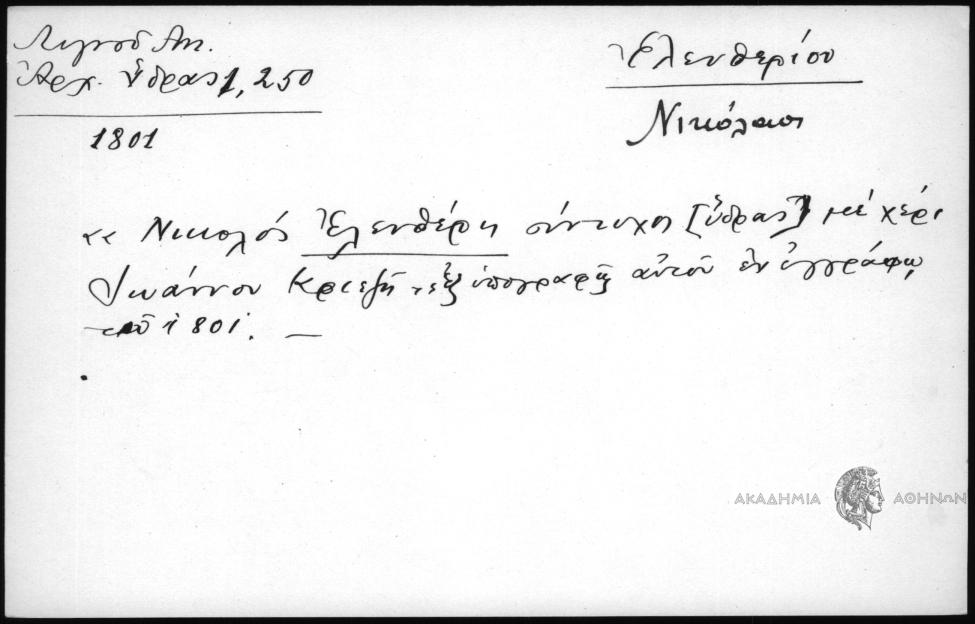 Λιγνοῦ Ἀν.
Ἀρχ. Ὕδρας 1, 250
1801
Ἐλευθερίου
Νικόλαος
«Νικολός Ἐλευθέρη σύντυχη [ὕδρας] μέ χέρι
Ἰωάννου Κριεζῆ» ἐξ ὑπογραφῆς αὐτοῦ ἐν ἐγγράφῳ
τοῦ 1801. —
ΑΚΑΔΗΜΙΑ ΑΘΗΝΩΝ